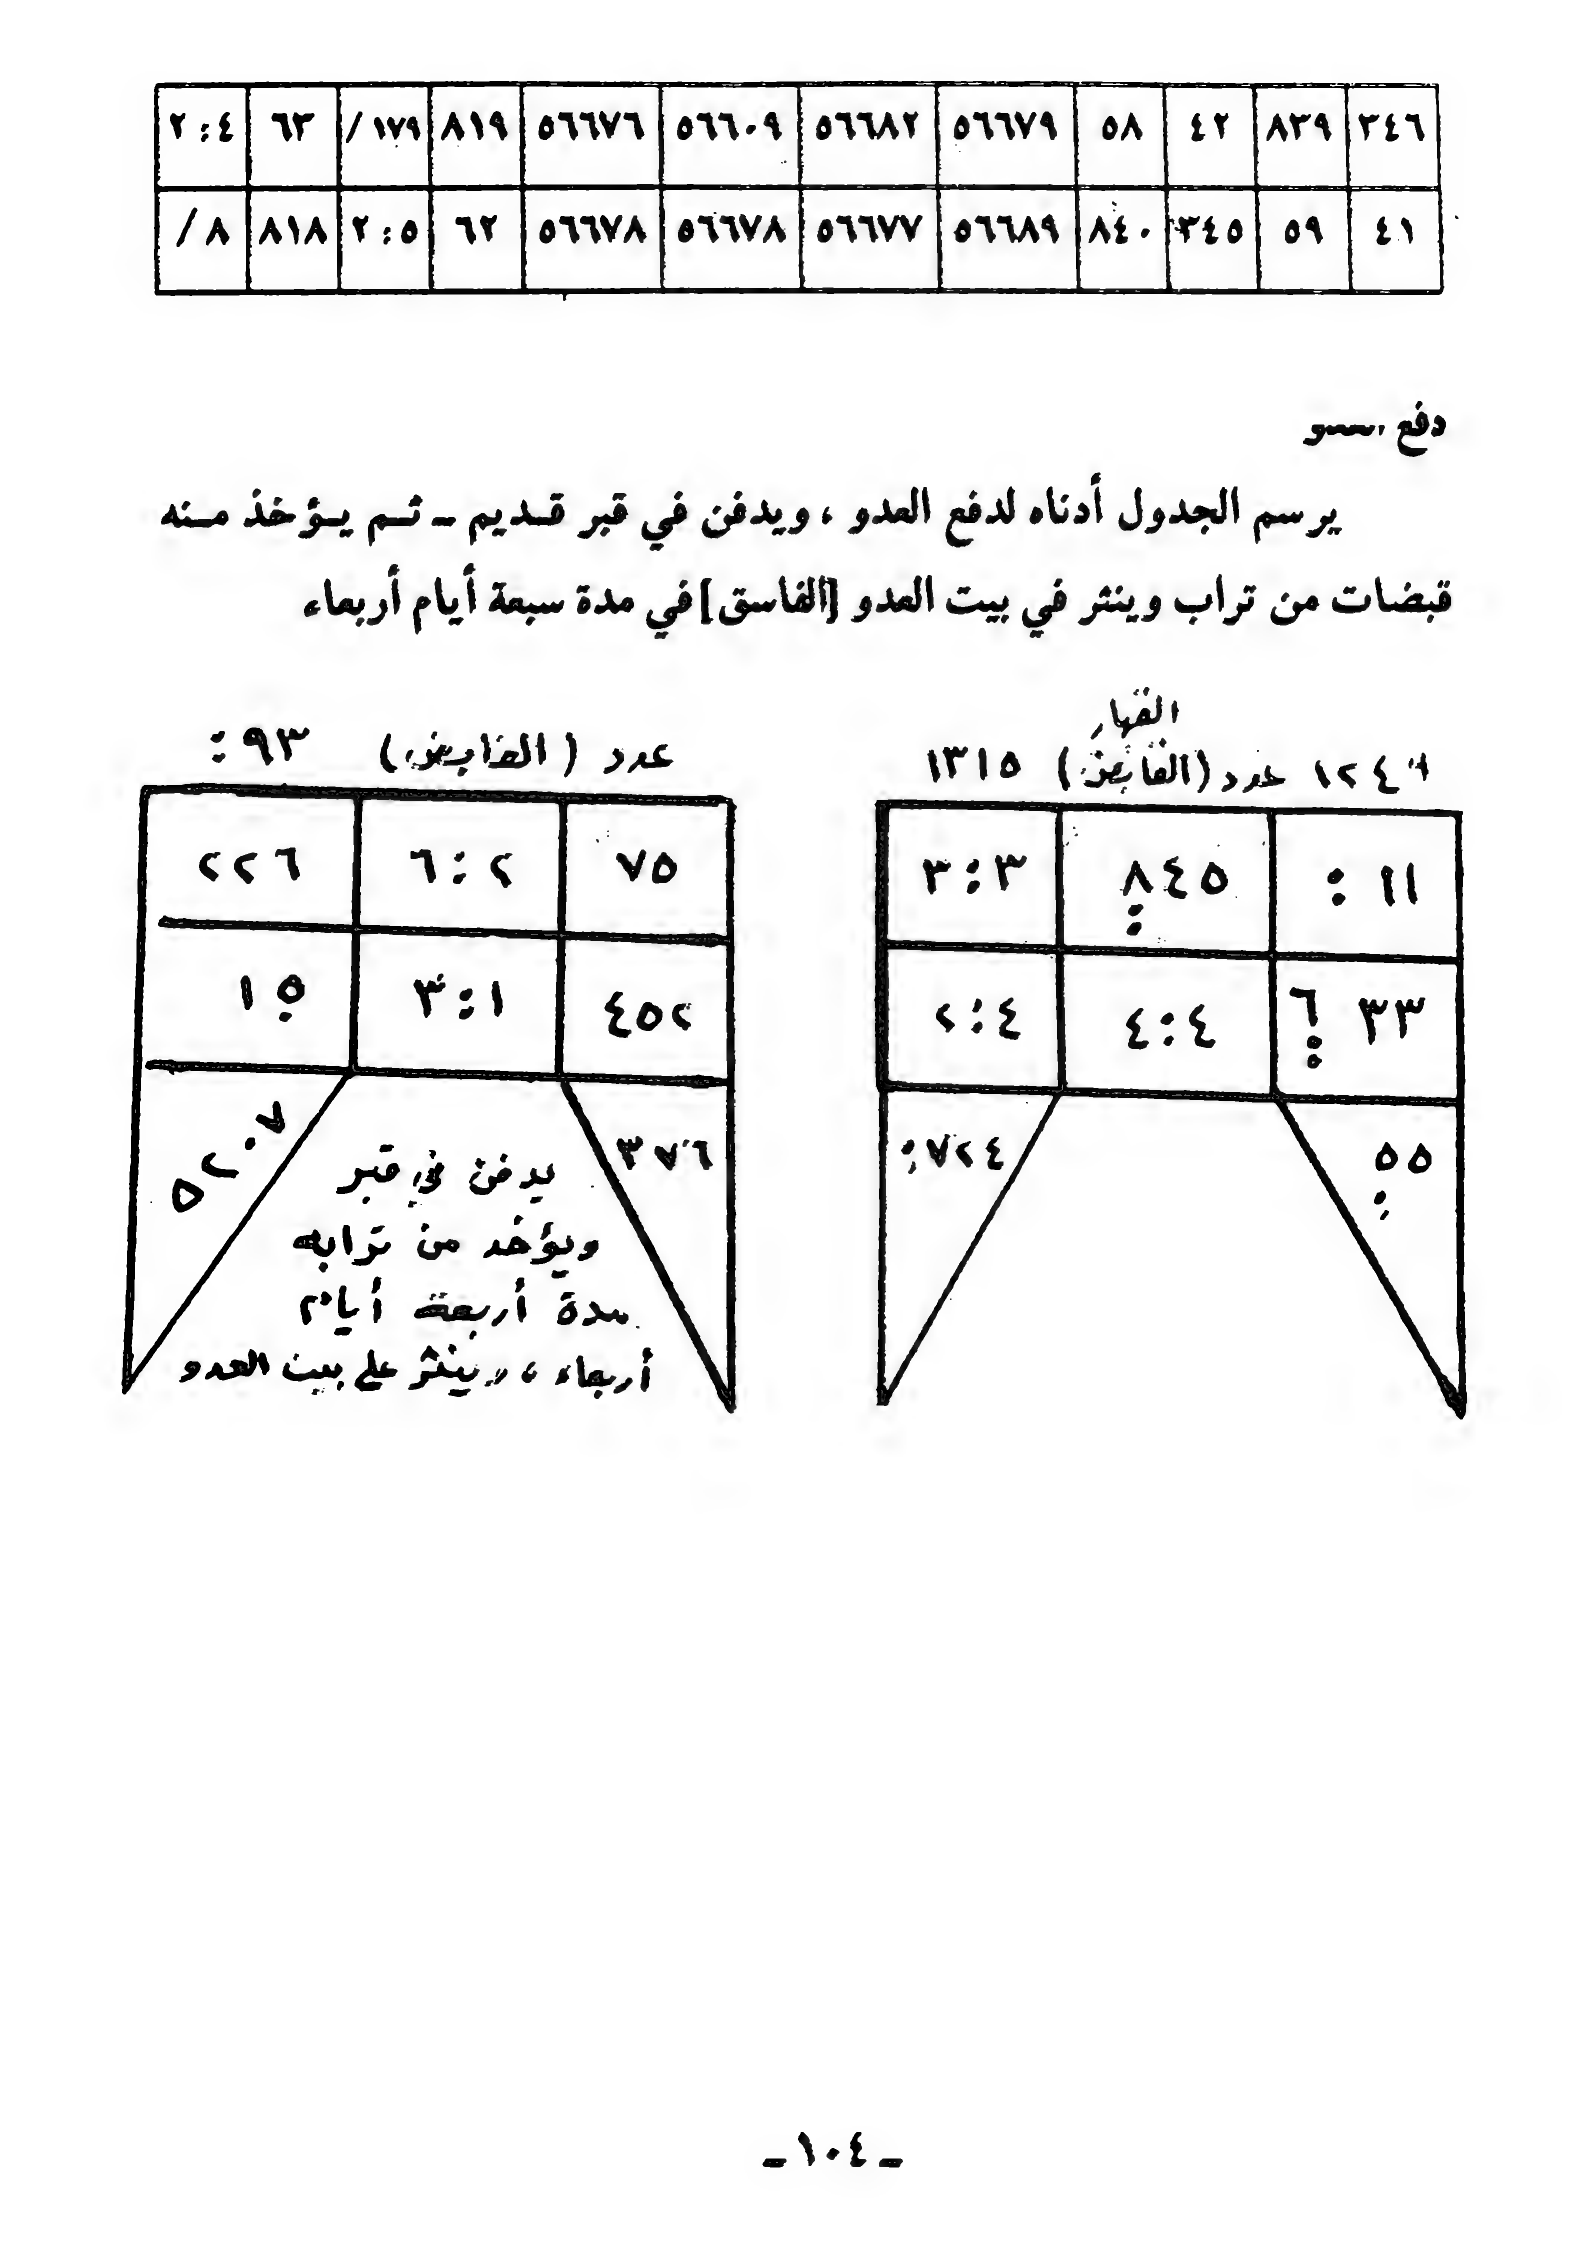 ٣٤٦ ٨٣٩ ٤٢ ٥٨ ٥٦٦٧٩ ٥٦٦٨٢ ٥٦٦٠٩ ٥٦٦٧٦ ٨١٩ ١٧٩/ ٦٣ ٢:٤
٤١ ٥٩ ٣٤٥ ٨٤٠ ٥٦٦٨٩ ٥٦٦٧٧ ٥٦٦٧٨ ٥٦٦٧٨ ٦٢ ٢:٥ ٨١٨ ٨/
دفع
يرسم الجدول أدناه لدفع العدو ، ويدفن في قبر قديم ـ ثم يؤخذ منه
قبضات من تراب وينثر في بيت العدو [الفاسق] في مدة سبعة أيام أربعاء
القهار
١٢٤ عدد (القابض) ١٣١٥
١١ : ٨٤٥ : ٣:٣
٣٣ ٦ : ٤:٤ ٢:٤
٥٥ : ٧٢٤:
عدد (القابض) ٩٣:
٧٥ ٦:٢ ٢٢٦
٤٥٢ ٣:١ ١٥
٣٧٦ ٥٢٠٧
يدفن في قبر
ويؤخذ من ترابه
مدة أربعة أيام
أربعاء ، وينثر على بيت العدو
ـ ١٠٤ ـ